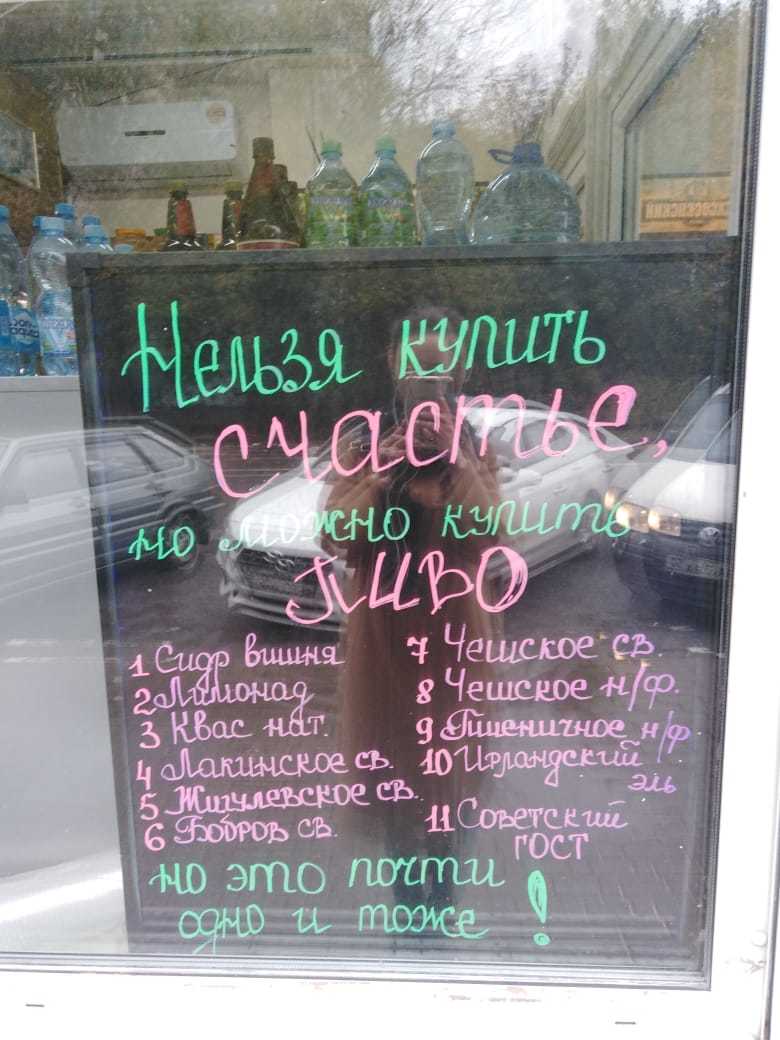 Нельзя купить
счастье,
но можно купить
пиво
1 Сидр вишня
2 Лимонад
3 Квас нат.
4 Лакинское св.
5 Жигулевское св.
6 Бобров св.
7 Чешское св.
8 Чешское н/ф.
9 Пшеничное н/ф
10 Ирландский
эль
11 Советский
ГОСТ
но это почти
одно и тоже !